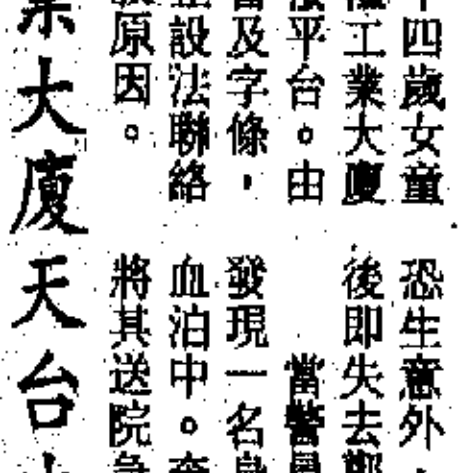 四歲女童
工業大廈
平台。由
及字條，
設法聯絡
原因。
恐生意外，
後即失去
當警
發現一名
血泊中。
將其送院急
大廈天台